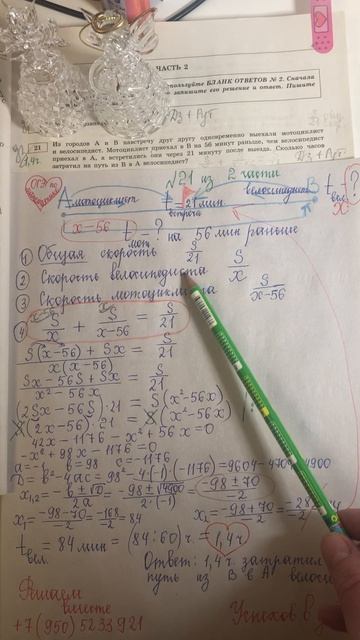 ЧАСТЬ 2
используйте БЛАНК ОТВЕТОВ № 2. Сначала
запишите его решение и ответ. Пишите
21 Из городов А и В навстречу друг другу одновременно выехали мотоциклист
и велосипедист. Мотоциклист приехал в В на 56 минут раньше, чем велосипедист
приехал в А, а встретились они через 21 минуту после выезда. Сколько часов
затратил на путь из В в А велосипедист?
№21 из 2 части
ОГЭ
А мотоциклист t = 21 мин велосипедист В t вел. = ?
встречи
x
x-56 t мот = ? на 56 мин раньше
① Общая скорость S/21
② Скорость велосипедиста S/x
③ Скорость мотоциклиста S/x-56
④ S/x + S/x-56 = S/21
S(x-56) + Sx / x(x-56) = S/21
Sx - 56S + Sx / x²-56x = S/21
(2Sx-56S)·21 = S(x²-56x)
S(2x-56)·21 = S(x²-56x)
42x - 1176 - x² + 56x = 0
-x² + 98x - 1176 = 0
a=-1 b=98 c=-1176
D = b²-4ac = 98²-4·(-1)·(-1176) = 9604-4704=4900
x1,2 = -b±√D / 2a = -98±√4900 / 2·(-1) = -98±70 / -2
x1 = -98-70 / -2 = -168 / -2 = 84 x2 = -98+70 / -2 = -28 / -2
t вел. = 84 мин = (84:60) ч = 1,4 ч
Ответ: 1,4 ч затратил
путь из В в А
Решаем
вместе
+7(950)5233921
Успехов